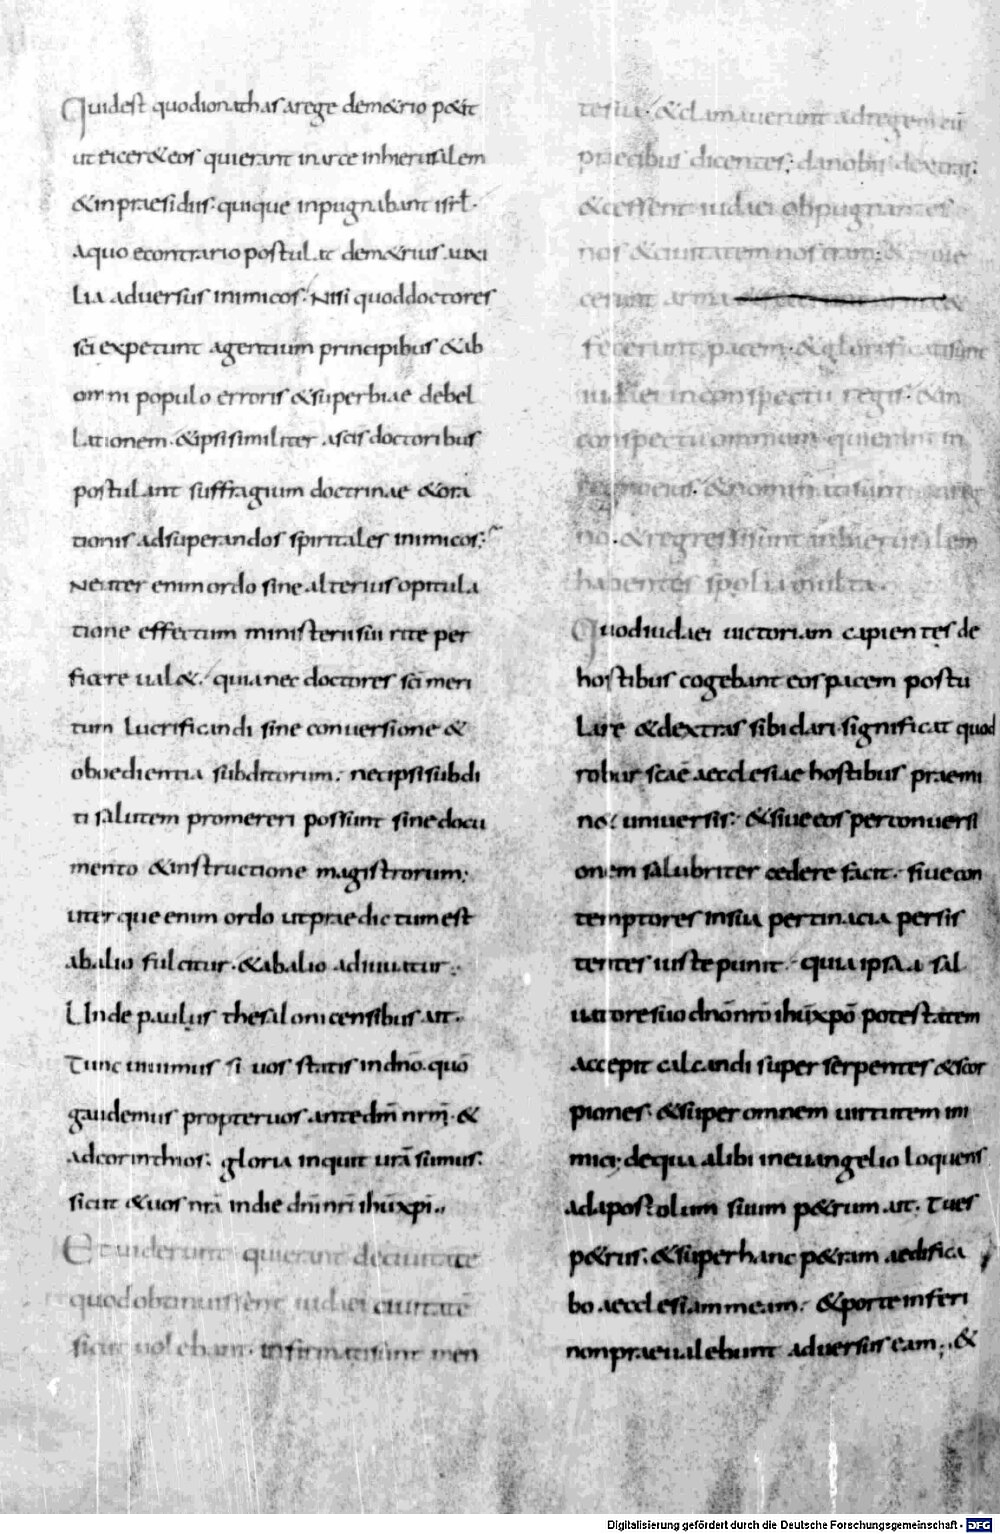 Quid est quod ionathas a rege dem&rio p&iit
ut eicer& eos qui erant in arce in hierusalem
& in praesidiis· quique inpugnabant isrł·
A quo econtrario postulat dem&rius auxi
lia adversus inimicos· Nisi quod doctores
sc̄i expetunt agentium principibus & ab
omni populo erroris & superbiae debel
lationem· & ipsi similiter a sc̄is doctoribus
postulant suffragium doctrinae & ora
tionis ad superandos spiritales inimicos;
Neuter enim ordo sine alterius opitula
tione effectum ministerii sui rite per
ficere ual&· quia nec doctores sc̄i meri
tum lucrificandi sine conuersione &
oboedientia subditorum; nec ipsi subdi
ti salutem promereri possunt sine docu
mento & instructione magistrorum;
uterque enim ordo ut praedictum est
ab alio fulcitur· & ab alio adiuuatur;
Unde paulus thesalonicensibus ait·
Tunc uiuimus si uos statis in dn̄o· quō
gaudemus propter uos ante dm̄ nrm̄· &
ad corinthios; gloria inquit urā sumus;
sicut & uos nrā in die dn̄i nri ihū xpi·,
Et uiderunt qui erant de ciuitate
quod obtinuissent iudaei ciuitatē
sicut uolebant· infirmati sunt men
te sua· & clamauerunt ad regem cū
praecibus dicentes; da nobis dextras·
& cessent iudaei obpugnantes
nos & ciuitatem nostram; & proie
cerunt arma &
fecerunt pacem· & glorificati sunt
iudaei in conspectu regis· & in
conspectu omnium qui erant in
regno eius· & nominati sunt in reg
no· & regressi sunt in hierusalem
habentes spolia multa·
Quod iudaei uictoriam capientes de
hostibus cogebant eos pacem postu
lare & dextras sibi dari· significat quod
robur sc̄ae aecclesiae hostibus praemi
n& uniuersis· & siue eos per conuersi
onem salubriter cedere facit· siue con
temptores in sua pertinacia persis
tentes iuste punit· quia ipsa a sal
uatore suo dn̄o nrō ihū xpō potestatem
accepit calcandi super serpentes & scor
piones· & super omnem uirtutem ini
mici; de qua alibi in euangelio loquens
ad apostolum suum p&rum ait· Tu es
p&rus· & super hanc p&ram aedifica
bo aecclesiam meam; & porte inferi
non praeualebunt adversus eam;, &
Digitalisierung gefördert durch die Deutsche Forschungsgemeinschaft - DFG